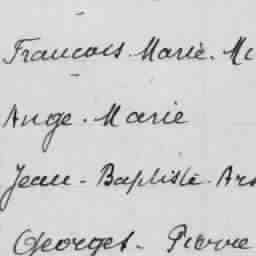 Francois Marie. Mc
Ange. Marie
Jean-Baptiste-Ars
Georges-Pierre